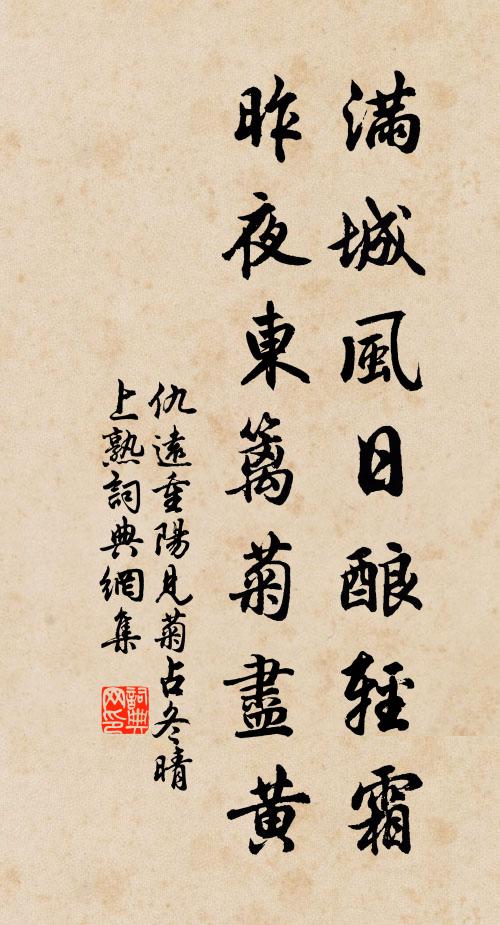 滿城風日酿輕霜
昨夜東籬菊盡黄
仇遠重陽見菊占冬晴
上熟詞典網集
詞典网印